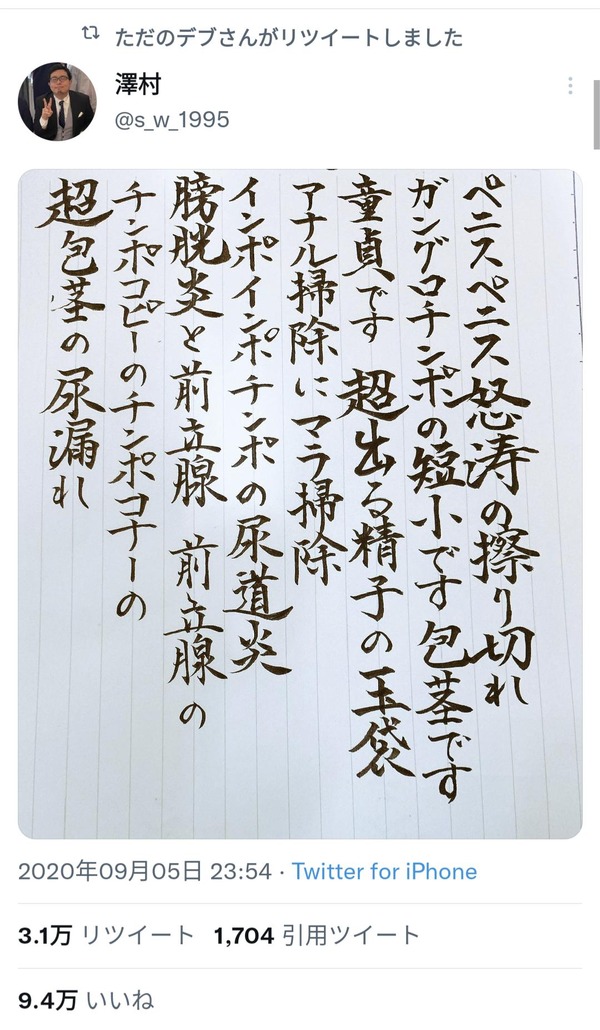 ただのデブさんがリツイートしました
澤村
@s_w_1995
ペニスペニス怒涛の擦り切れ
ガングロチンポの短小です包茎です
童貞です 超出る精子の玉袋
アナル掃除にマラ掃除
インポインポチンポの尿道炎
膀胱炎と前立腺 前立腺の
チンポコピーのチンポコナーの
超包茎の尿漏れ
2020年09月05日 23:54 · Twitter for iPhone
3.1万 リツイート 1,704 引用ツイート
9.4万 いいね